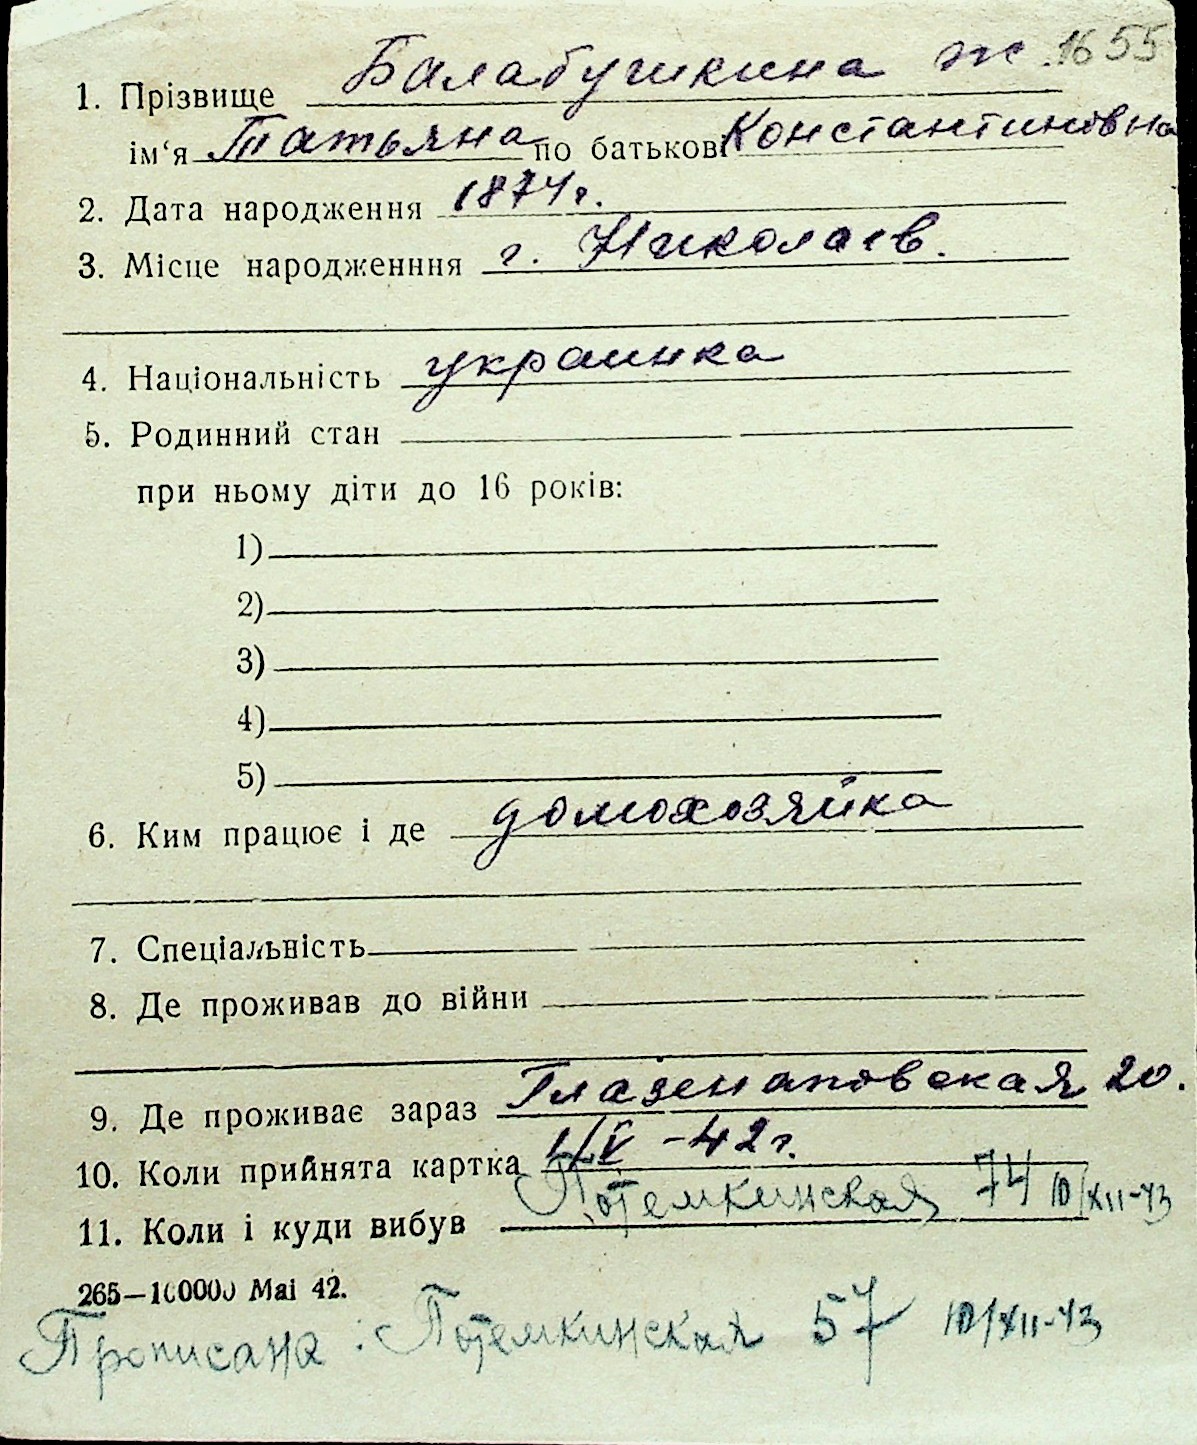 1655
1. Прізвище Балабушкина ж
ім‘я Татьяна по батькові Константиновна
2. Дата народження 1874г.
3. Місце народженння г. Николаев.
4. Національність украинка
5. Родинний стан
при ньому діти до 16 років:
1)
2)
3)
4)
5)
6. Ким працює і де домохозяйка
7. Спеціальність
8. Де проживав до війни
9. Де проживає зараз Глазенаповская 20.
10. Коли прийнята картка 1/V -42г.
11. Коли і куди вибув Потемкинская 74 10/XII-43
265—100000 Mai 42.
Прописана: Потемкинская 57 10/XII-43